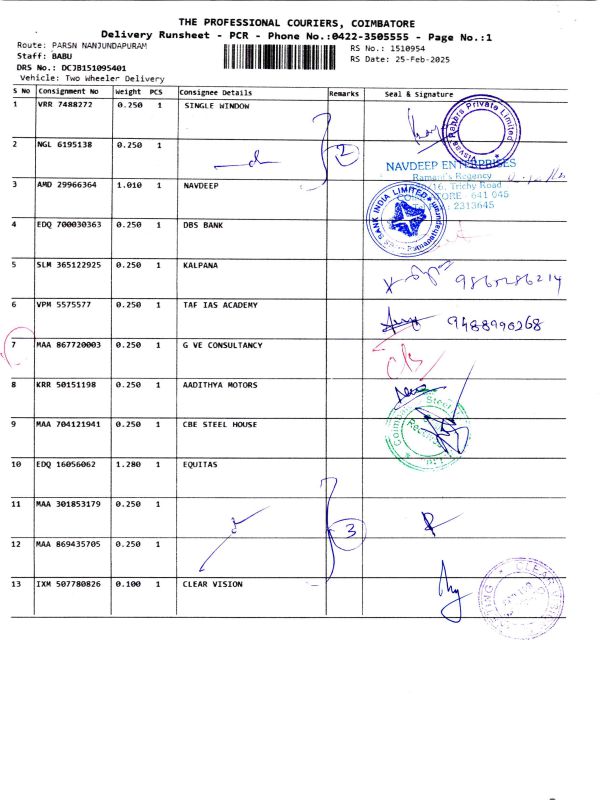 THE PROFESSIONAL COURIERS, COIMBATORE
Delivery Runsheet - PCR - Phone No.:0422-3505555 - Page No.:1
Route: PARSN NANJUNDAPURAM
RS No.: 1510954
Staff: BABU
RS Date: 25-Feb-2025
DRS No.: DCJB151095401
Vehicle: Two Wheeler Delivery
S No Consignment No Weight PCS Consignee Details Remarks Seal & signature
1 VRR 7488272 0.250 1 SINGLE WINDOW
Private Limited
2 NGL 6195138 0.250 1
2
NAVDEEP ENTERPRISES
Ramani's Regency
16, Trichy Road
3 AMD 29966364 1.010 1 NAVDEEP
641 045
2313645
BANK INDIA LIMITED
4 EDQ 700030363 0.250 1 DBS BANK
5 SLM 365122925 0.250 1 KALPANA
9865286214
6 VPM 5575577 0.250 1 TAF IAS ACADEMY
9488990268
7 MAA 867720003 0.250 1 G VE CONSULTANCY
8 KRR 50151198 0.250 1 AADITHYA MOTORS
Steel
9 MAA 704121941 0.250 1 CBE STEEL HOUSE
10 EDQ 16056062 1.280 1 EQUITAS
11 MAA 301853179 0.250 1
3
12 MAA 869435705 0.250 1
13 IXM 507780826 0.100 1 CLEAR VISION
CLEAR